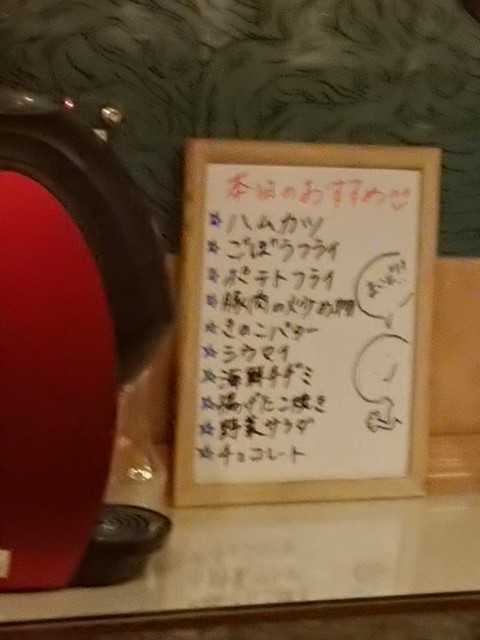 本日のおすすめ
☆ハムカツ
☆ごぼうフライ
☆ポテトフライ
☆豚肉の炒め物
☆きのこバター
☆シウマイ
☆海鮮チヂミ
☆揚げたこ焼き
☆野菜サラダ
☆チョコレート